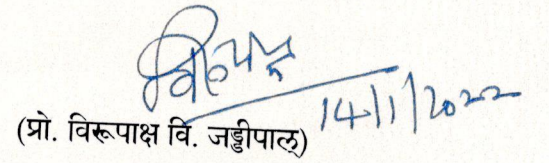 विरूपाक्ष
14/1/2022
(प्रो. विरूपाक्ष वि. जड्डीपाल्)